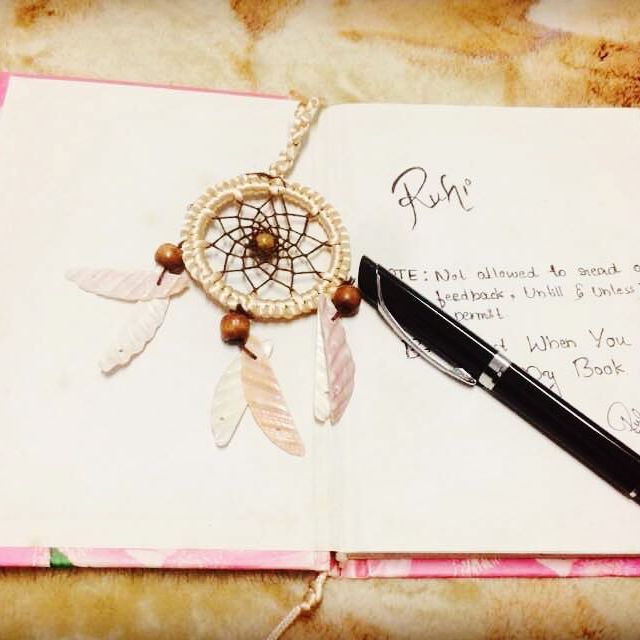 Ruhi
TE: Not allowed to read
feedback, Untill & Unless
permit
When You
Book